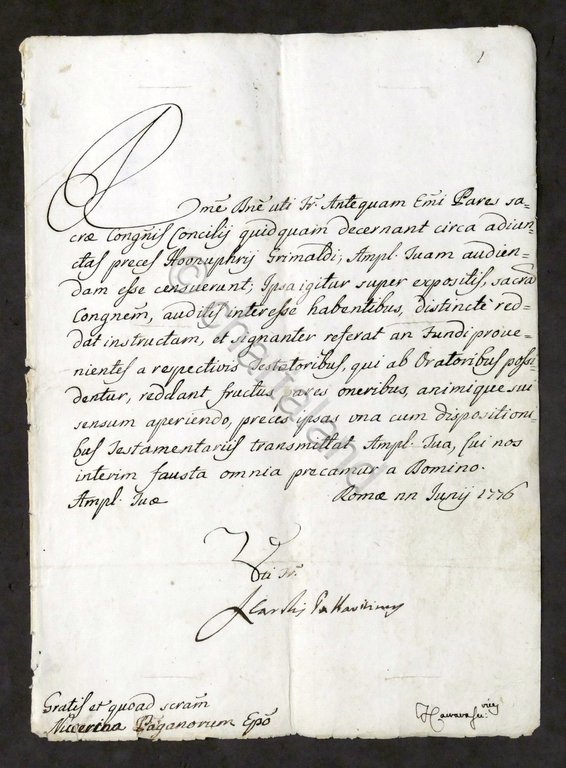 1
Rme Dne uti Fr. Antequam Emi Patres sa=
cræ Congñis Concilij quidquam decernant circa adiun=
ctas preces Honuphrij Grimaldi; Ampl. Tuam audien=
dam esse censuerunt; Ipsa igitur super expositis, sacrã
Congñem, auditis interesse habentibus, distinctè red=
dat instructam, et signanter referat an Fundi prove=
nientes a respectivis Testatoribus, qui ab Oratoribus possi=
dentur, reddant fructus pares oneribus, animique sui
sensum aperiendo, preces ipsas una cum dispositioni=
bus Testamentariis transmittat Ampl. Tua, cui nos
interim fausta omnia precamur a Domino.
Ampl. Tuæ Romæ Junij 1776
Uti Fr.
Gratis et quoad scram
Nucerina Paganorum Epõ
© Chartaland